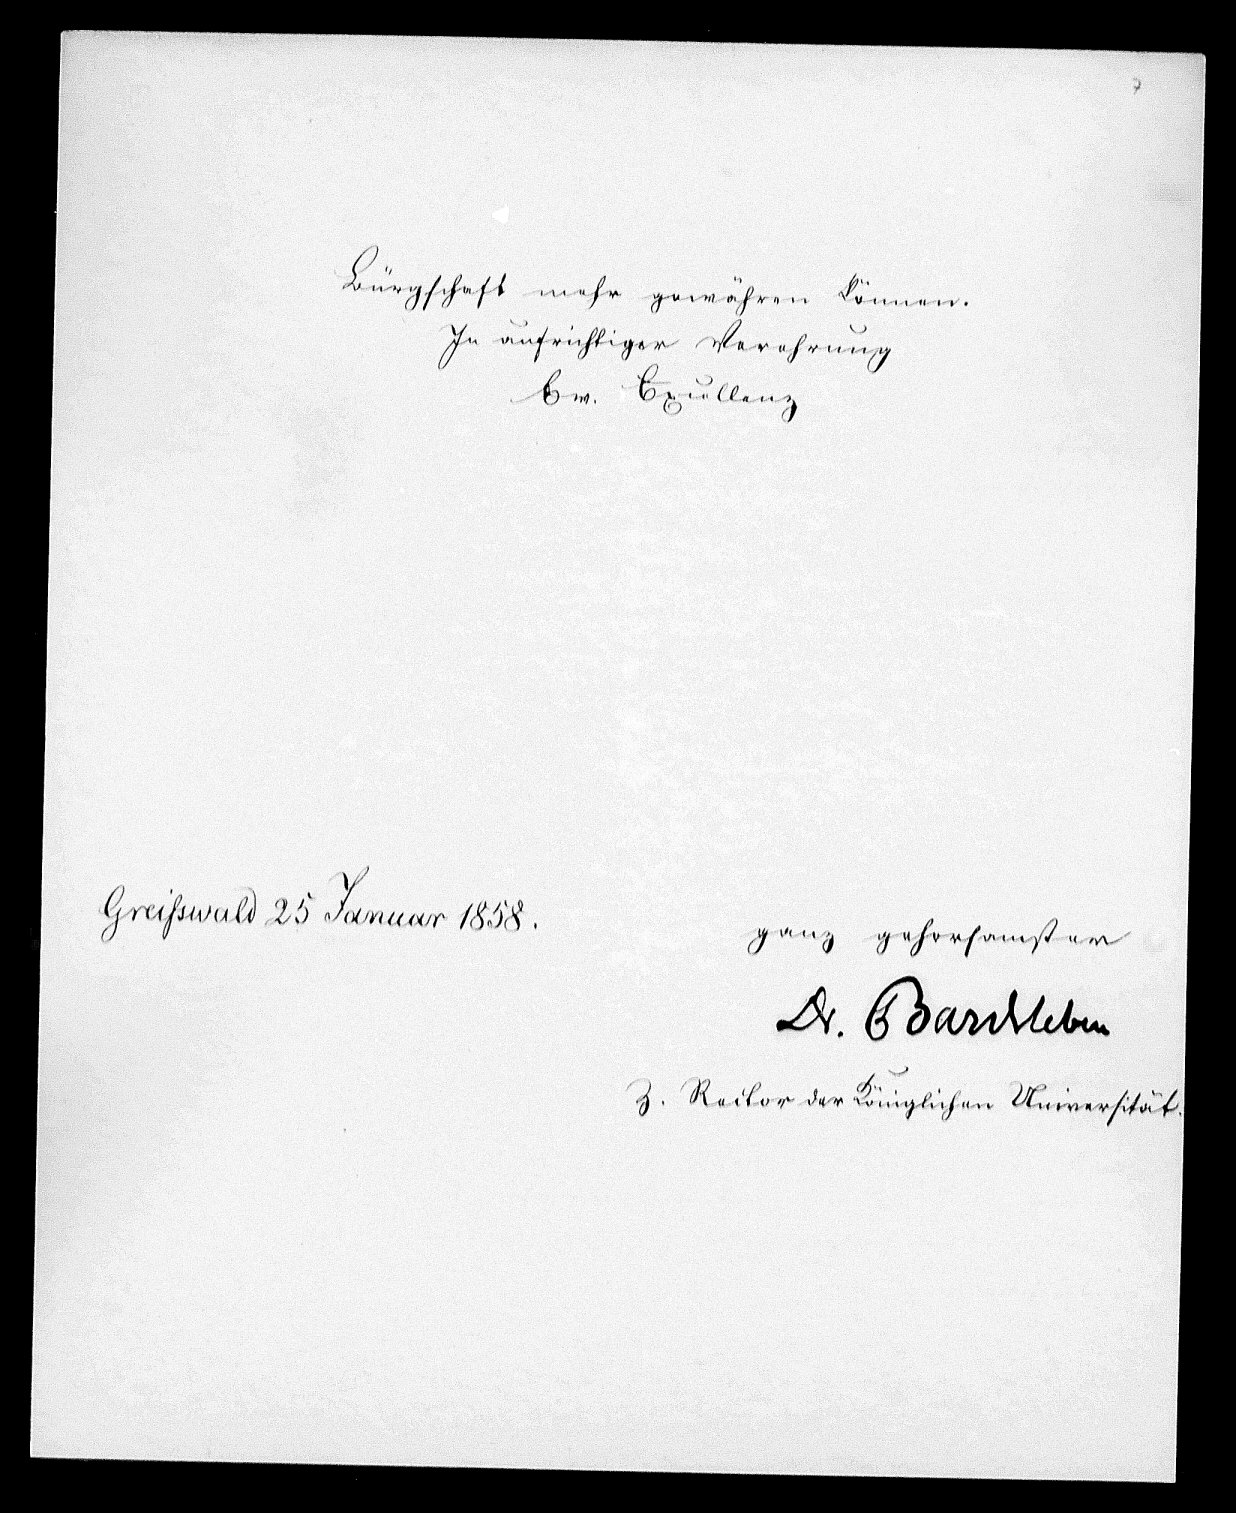 Bürgschaft mehr gewähren können.
In aufrichtiger Verehrung
Ew. Excellenz
Greifswald 25 Januar 1858.
ganz gehorsamster
Dr. Bardeleben
Z. Rector der Königlichen Universität.